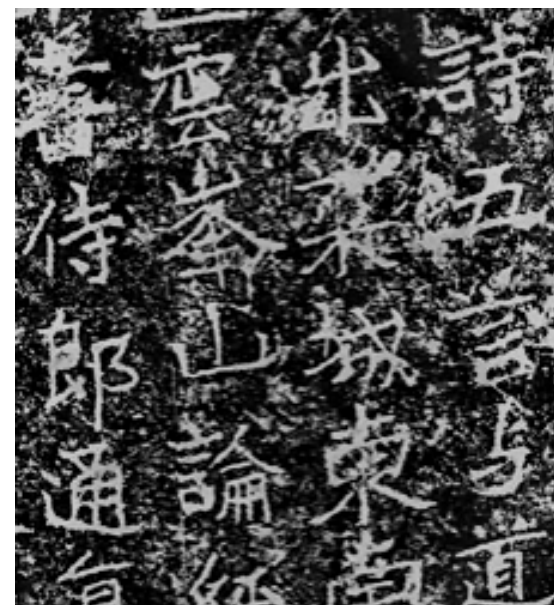 詩五言与道
出萊城東南
雲峯山論經
書侍郎通直